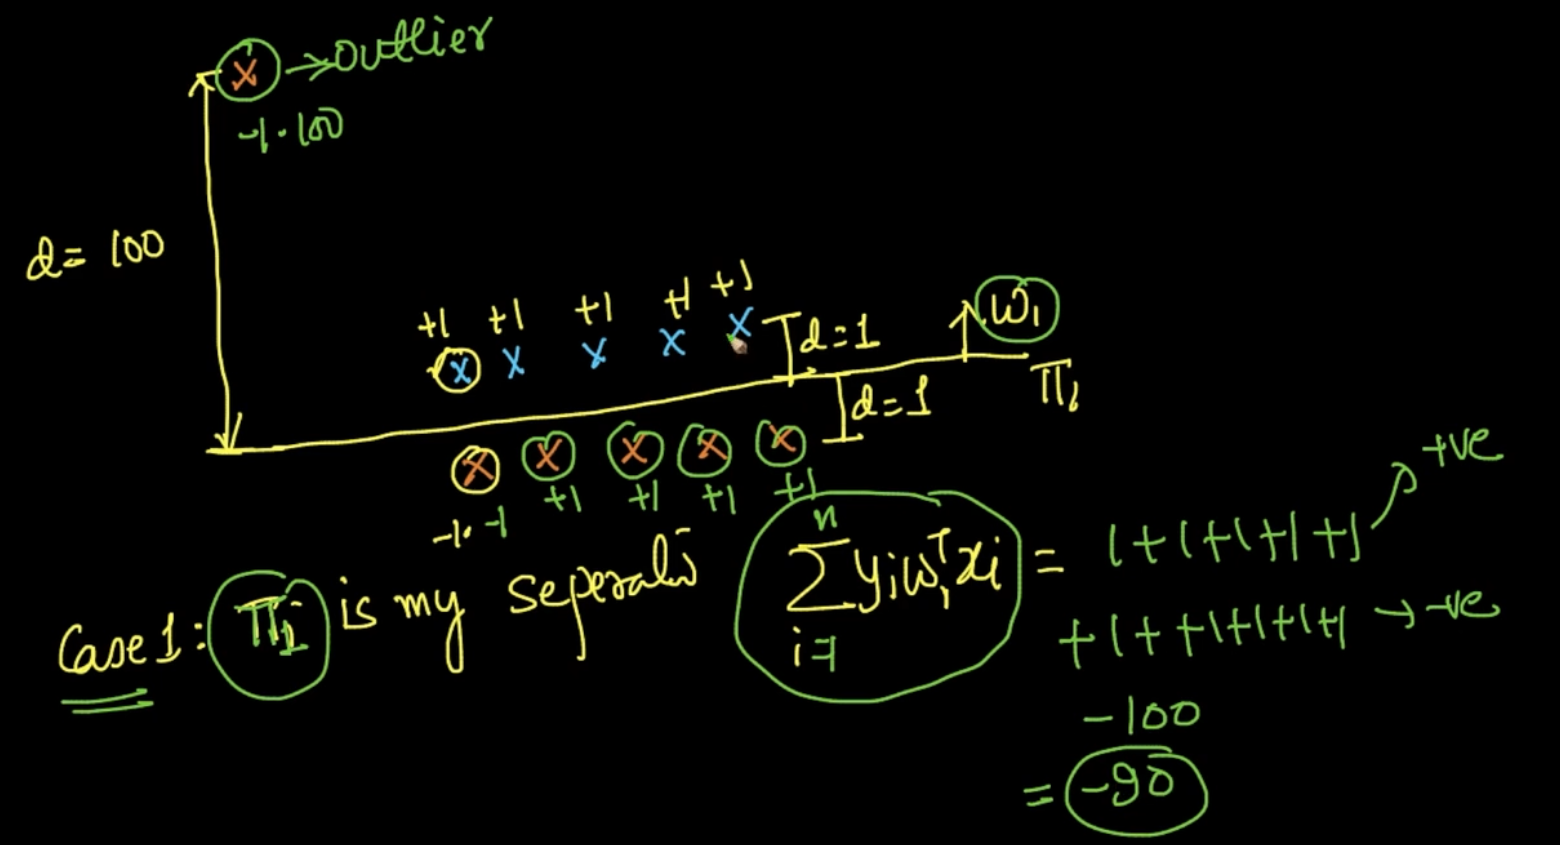 x → outlier
-1.100
d = 100
+1 +1 +1 +1 +1
x x x x x
d=1
w₁
π₁
d=1
x x x x x
-1.-1 +1 +1 +1 +1
Case 1: π₁ is my
n
∑ yᵢw₁ᵀxᵢ = 1+1+1+1+1 → +ve
i=1
+1++1+1+1+1 → -ve
-100
= -90